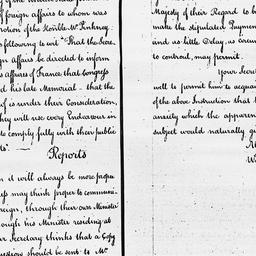 of foreign affairs to whom was
motion of the Honble Mr Pinkney
following to wit "That the Secre
gn affairs be directed to inform
affaires of France that Congress
his late Memorial - that the
of is under their Consideration,
they will use every Endeavour in
to comply fully with their public
Reports
it will always be more proper
may think proper to communi-
reign, through their own Minister
ough his Minister residing at
Secretary thinks that a Copy
should be sent to Mr
Majesty of their Regard to
make the stipulated Payment
and as little Delay, as
to contract, may permit.
Your Secre
well to permit him to acquain
of the above Instruction that
anxiety which the apparen
subject would naturally